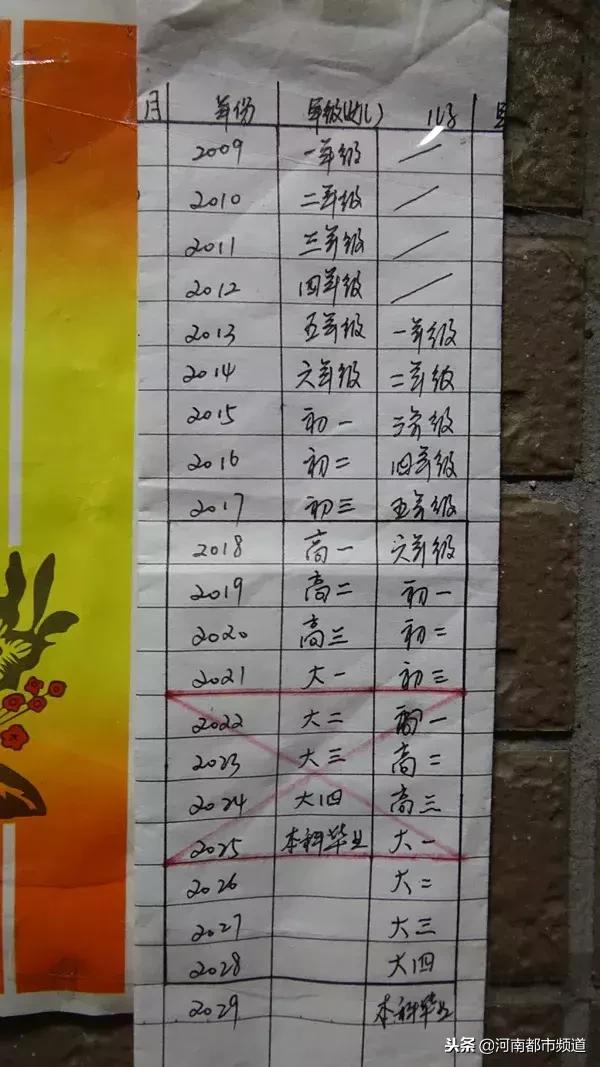 月 年份 年级(女儿) 儿子
2009 一年级
2010 二年级
2011 三年级
2012 四年级
2013 五年级 一年级
2014 六年级 二年级
2015 初一 三年级
2016 初二 四年级
2017 初三 五年级
2018 高一 六年级
2019 高二 初一
2020 高三 初二
2021 大一 初三
2022 大二 高一
2023 大三 高二
2024 大四 高三
2025 本科毕业 大一
2026 大二
2027 大三
2028 大四
2029 本科毕业
头条 @河南都市频道